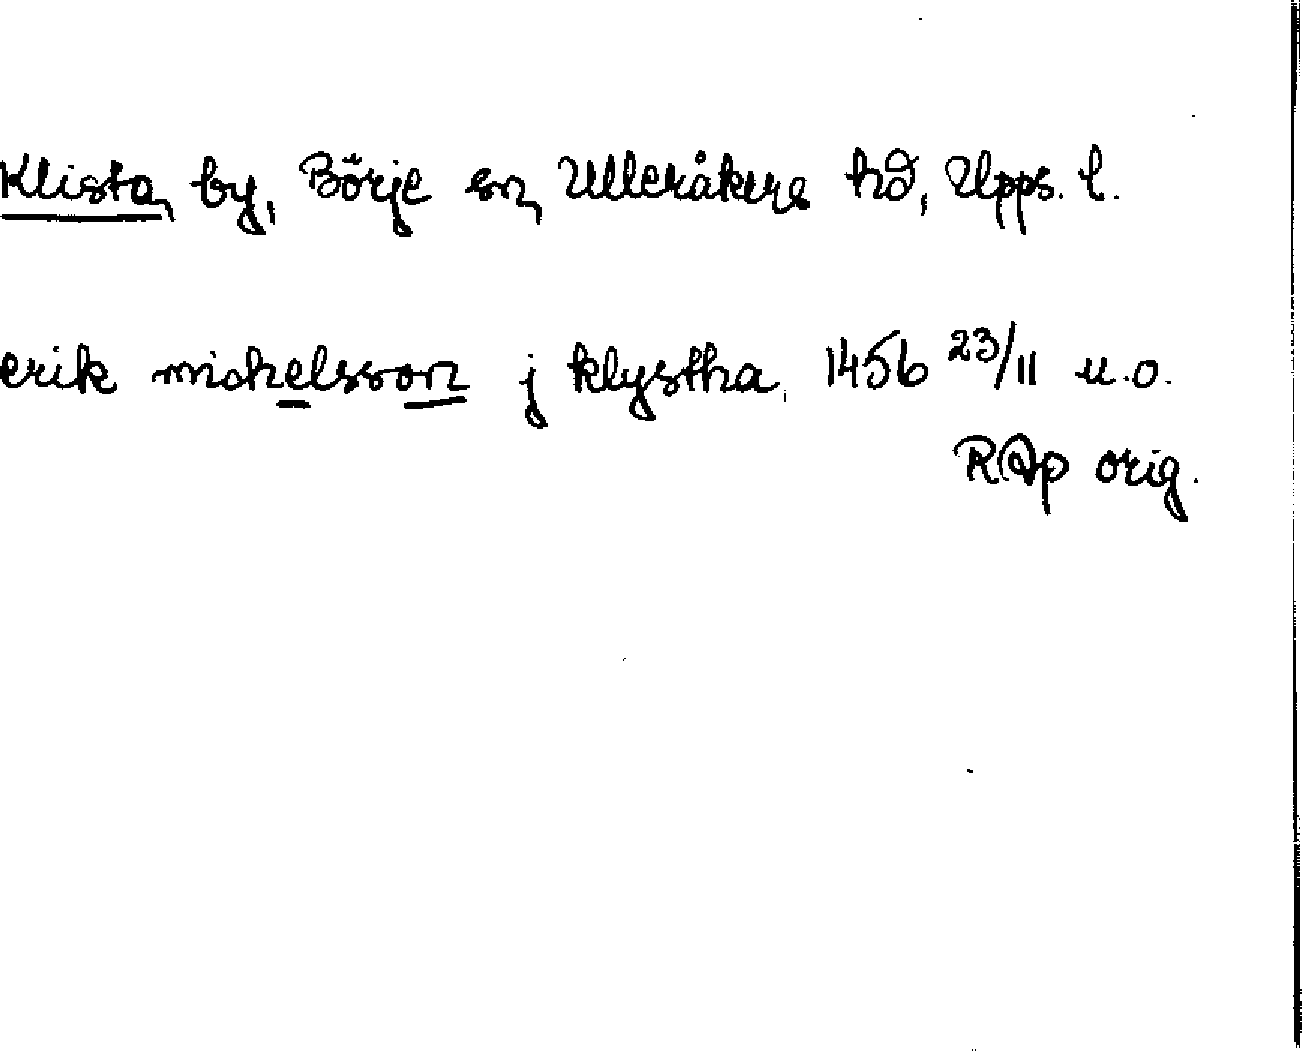 Klista, by, Börje sn, Ulleråkers hd, Upps. l.
erik michelsson j klystha. 1456 23/11 u.o.
RAp orig.